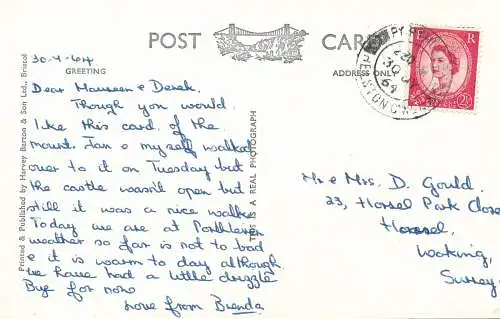 POST CARD
30-4-64
GREETING
ADDRESS ONLY
Dear Maureen & Derek.
Though you would
like this card of the
mount. Jan & myself walked
over to it on Tuesday but
the castle wasn't open but
still it was a nice walk.
Today we are at Porthleven
weather so far is not to bad
& it is warm to day although
we have had a little drizzle
Bye for now
Love from Brenda
Printed & Published by Harvey Barton & Son Ltd., Bristol
THIS IS A REAL PHOTOGRAPH
R
2½
Mr & Mrs. D. Gould.
23, Horsel Park Close
Horsel.
Woking,
Surrey.